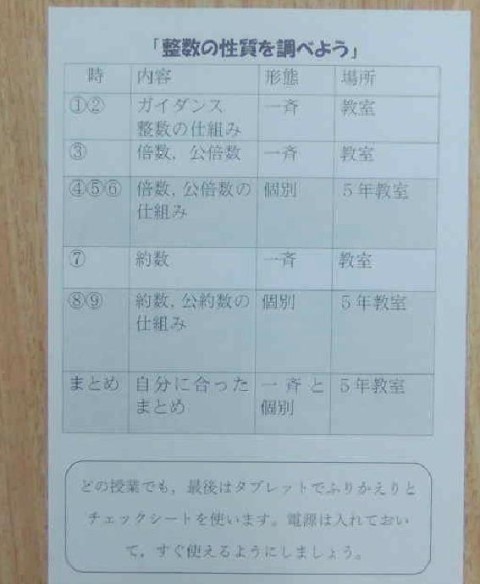 「整数の性質を調べよう」
時 内容 形態 場所
①② ガイダンス 一斉 教室
整数の仕組み
③ 倍数，公倍数 一斉 教室
④⑤⑥ 倍数，公倍数の 個別 5年教室
仕組み
⑦ 約数 一斉 教室
⑧⑨ 約数，公約数の 個別 5年教室
仕組み
まとめ 自分に合った 一斉と 5年教室
まとめ 個別
どの授業でも，最後はタブレットでふりかえりと
チェックシートを使います。電源は入れておい
て，すぐ使えるようにしましょう。